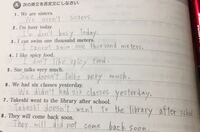 次の英文を否定文にしなさい。
1. We are sisters.
We aren't sisters.
2. I'm busy today.
I'm don't busy today.
3. I can swim one thousand meters.
I cannot swim one thousand meters.
4. I like spicy food.
I don't like spicy food.
5. Sue talks very much.
Sue doesn't talks very much.
6. We had six classes yesterday.
We didn't had six classes yesterday.
7. Takeshi went to the library after school.
Takeshi doesn't went to the library after school
8. They will come back soon.
They will did not come back soon.